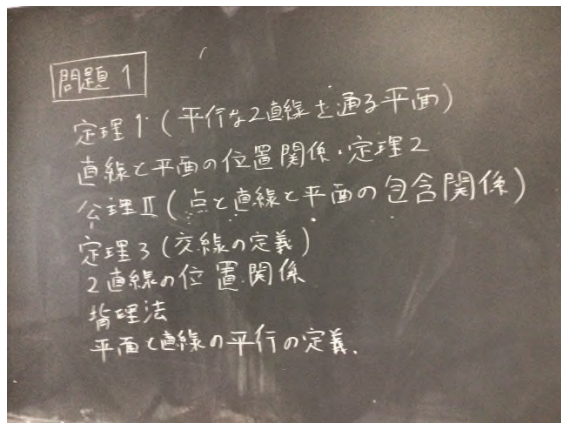 問題 1
定理1 (平行な2直線を通る平面)
直線と平面の位置関係・定理2
公理Ⅱ (点と直線と平面の包含関係)
定理3 (交線の定義)
2直線の位置関係
背理法
平面と直線の平行の定義.